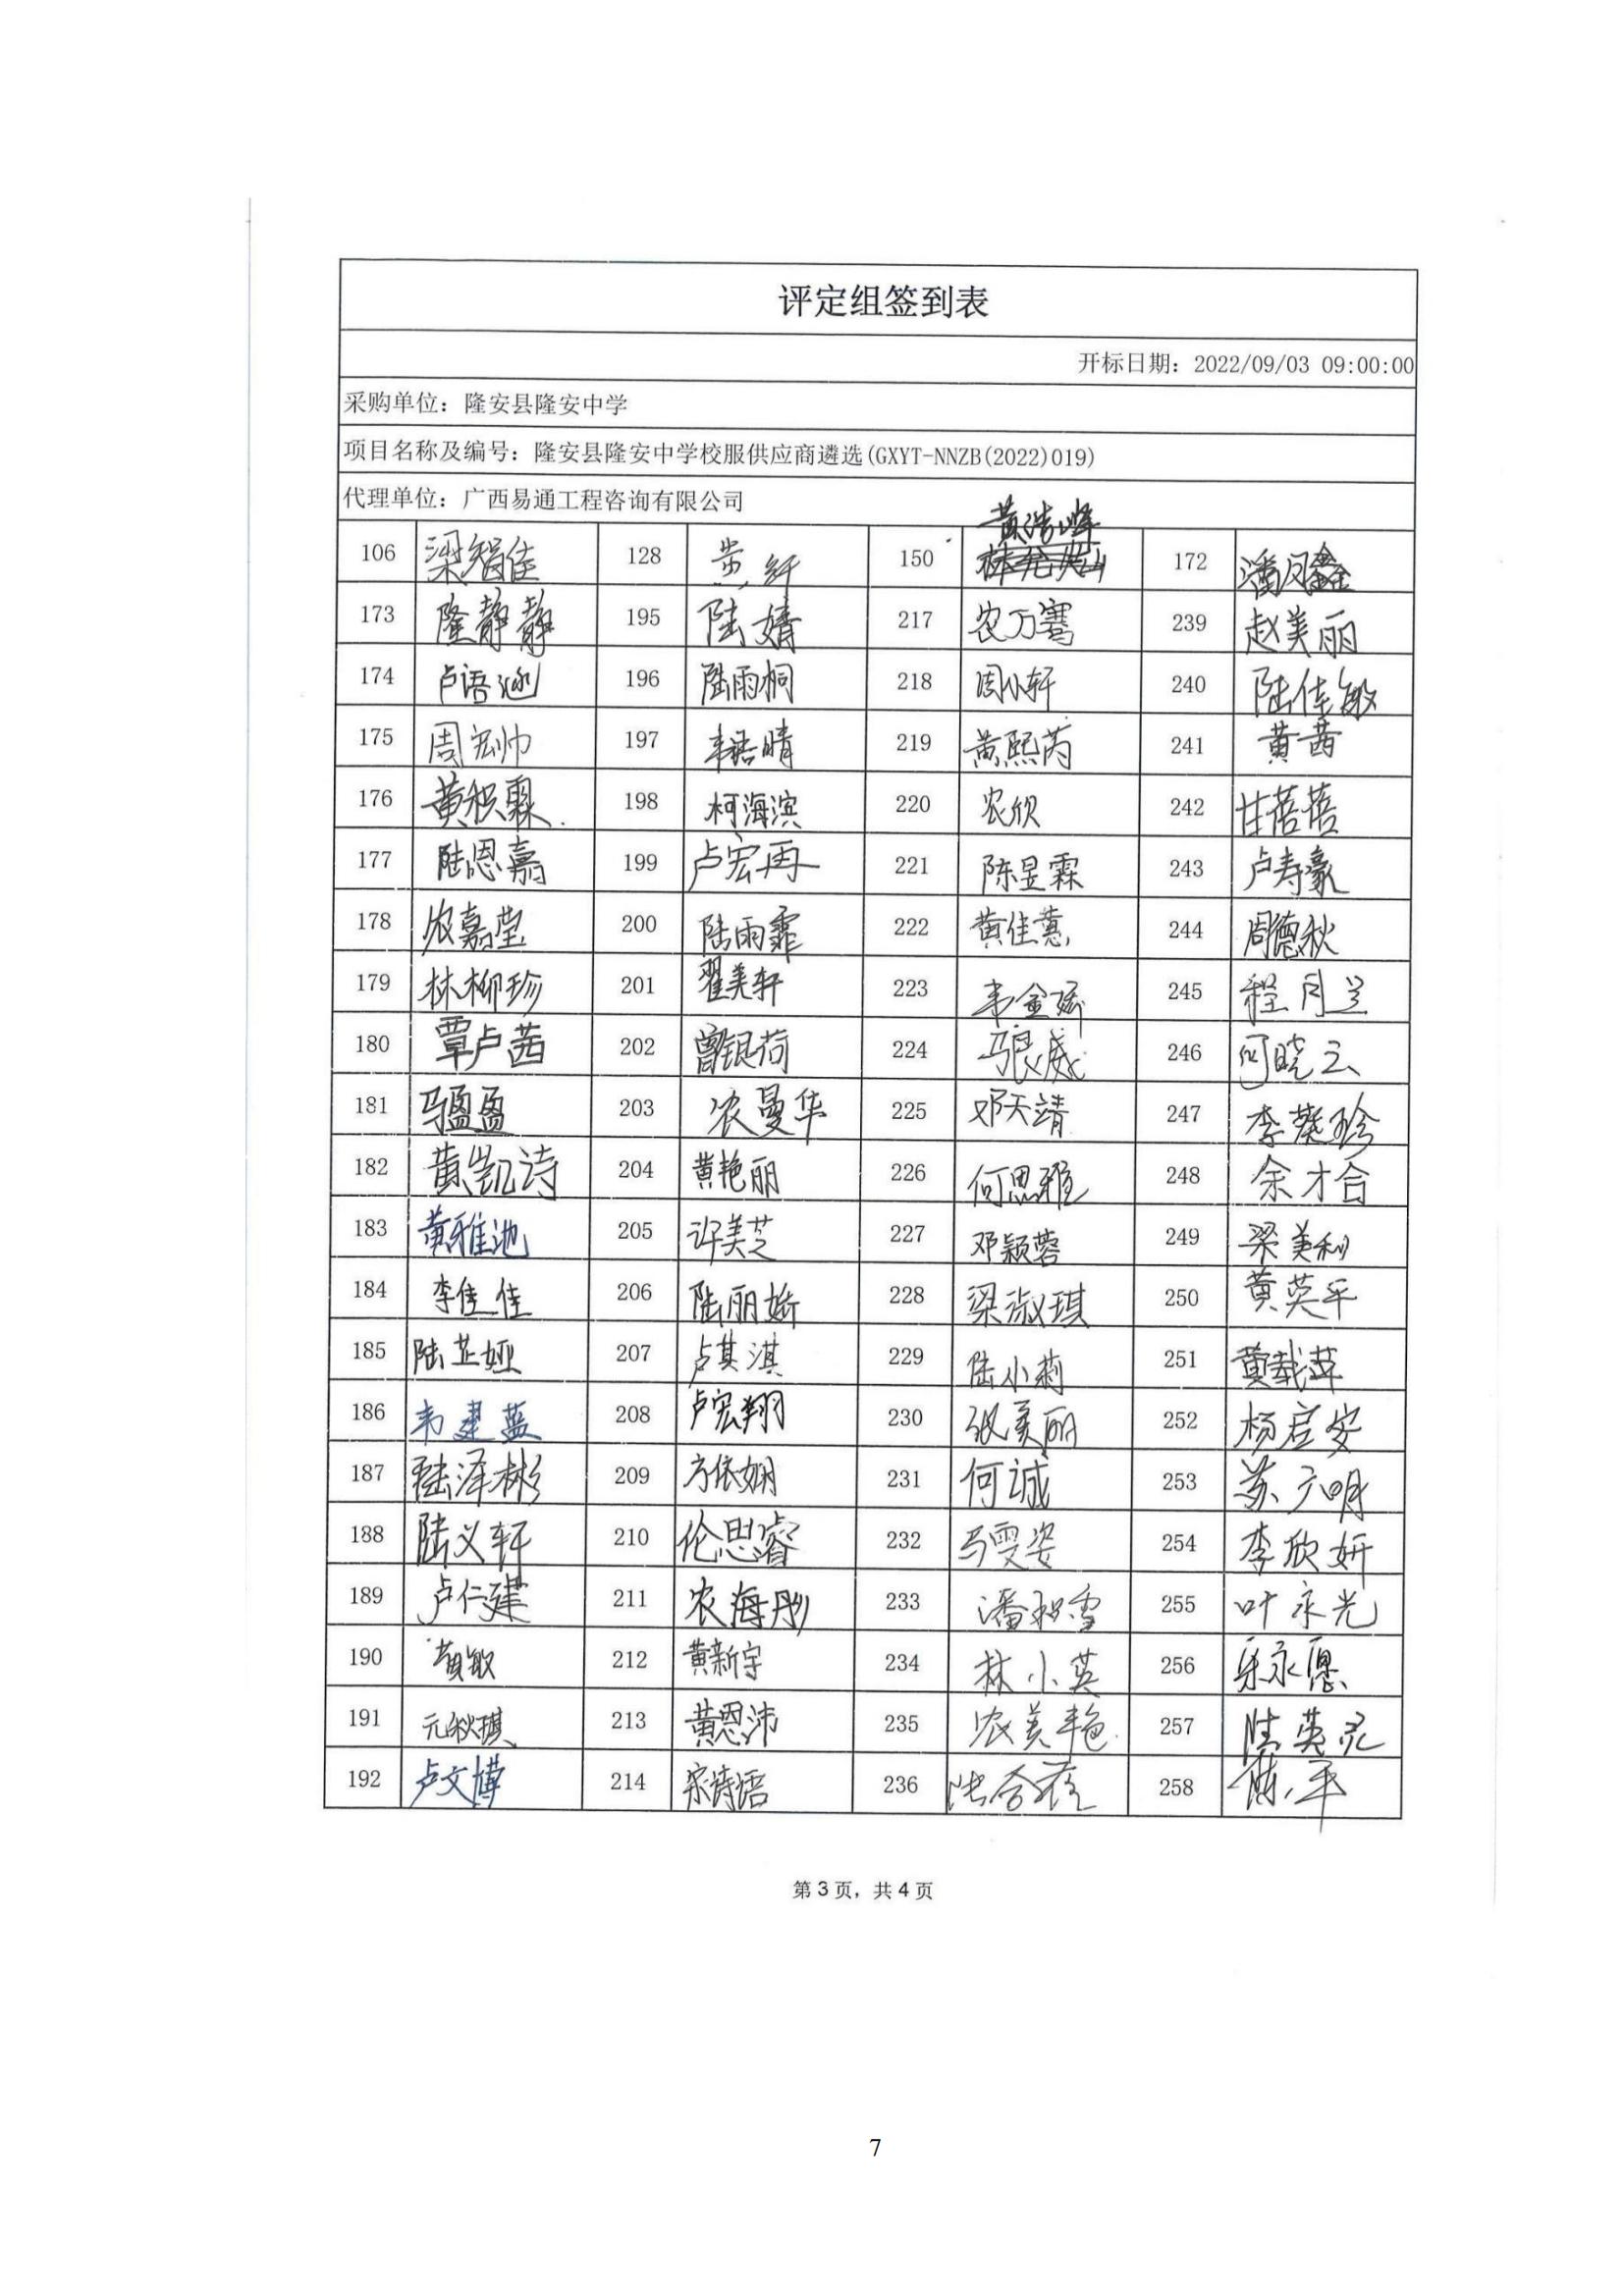 评定组签到表
开标日期：2022/09/03 09:00:00
采购单位：隆安县隆安中学
项目名称及编号：隆安县隆安中学校服供应商遴选(GXYT-NNZB(2022)019)
代理单位：广西易通工程咨询有限公司
黄浩峰
106 梁智佳 128 黄纤 150 172 潘凤鑫
173 隆静静 195 陆婧 217 农万骞 239 赵美丽
174 卢语涵 196 陆雨桐 218 周小轩 240 陆佳敏
175 周宏帅 197 韦语晴 219 黄熙芮 241 黄茜
176 黄积霖 198 柯海滨 220 农欣 242 甘蓓蓓
177 陆恩嘉 199 卢宏再 221 陈昱霖 243 卢寿豪
178 农嘉莹 200 陆雨霏 222 黄佳慧 244 周德秋
179 林柳珍 201 翟美轩 223 245 程月兰
180 覃卢茜 202 曾银荷 224 246 何晓云
181 马盈盈 203 农曼华 225 邓天靖 247
182 黄凯诗 204 黄艳丽 226 何思雅 248 余才合
183 黄雅池 205 许美芝 227 邓颖蓉 249 梁美利
184 李佳佳 206 陆丽娇 228 梁淑琪 250 黄英平
185 陆芷娅 207 卢其淇 229 陆小莉 251
186 韦建蓝 208 卢宏翔 230 张美丽 252
187 陆泽彬 209 方依娴 231 何诚 253
188 陆义轩 210 伦思睿 232 马雯姿 254 李欣妍
189 卢仁建 211 农海彤 233 255 叶永光
190 黄敏 212 黄新宇 234 林小英 256
191 元秋琪 213 黄恩沛 235 农美艳 257 陆英灵
192 卢文博 214 宋诗语 236 258
第 3 页，共 4 页
7